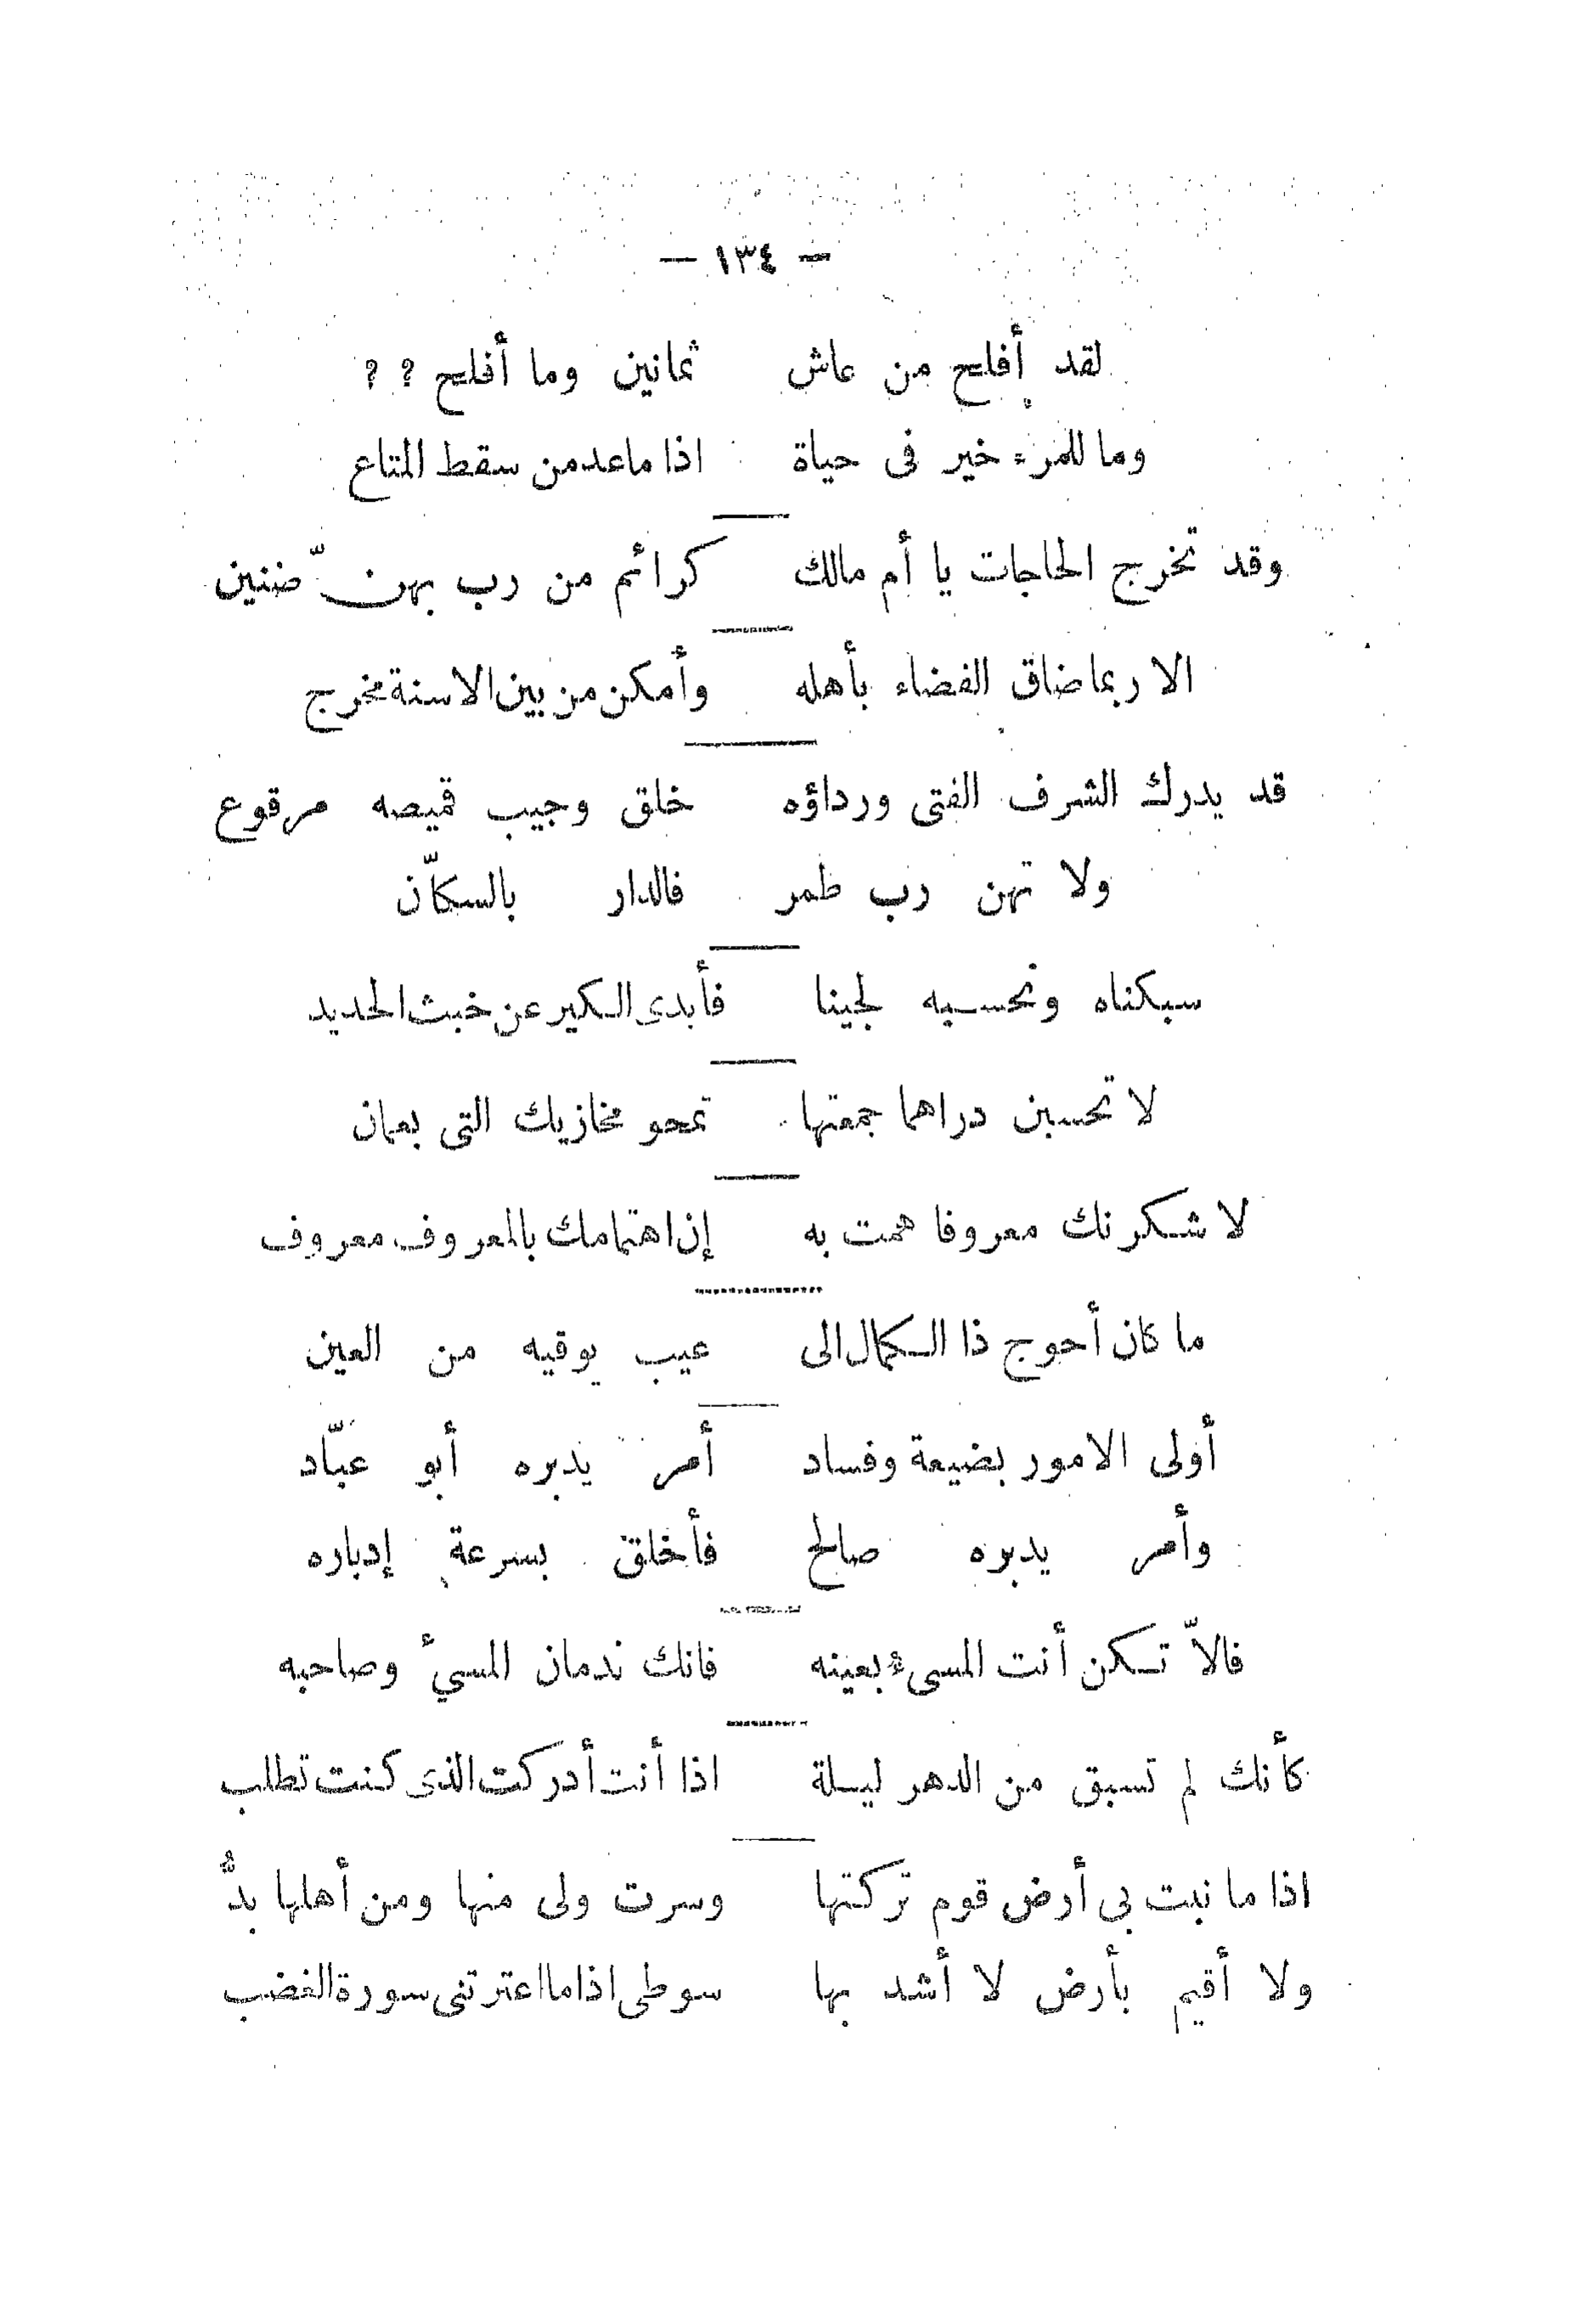 — ١٣٤ —
لقد أفلح من عاش ثمانين وما أفلح ? ?
وما للمرء خير فى حياة اذا ماعد من سقط المتاع
وقد تخرج الحاجات يا أم مالك كرائم من رب بهنّ ضنين
الا ربما ضاق الفضاء بأهله وأمكن من بين الاسنة مخرج
قد يدرك الشرف الفتى ورداؤه خلق وجيب قميصه مرقوع
ولا تهن رب طمر فالدار بالسكّان
سبكناه ونحسبه لجينا فأبدى الكير عن خبث الحديد
لا تحسبن دراهما جمعتها تمحو مخازيك التى بعمان
لاشكرنك معروفا هممت به إن اهتمامك بالمعروف معروف
ما كان أحوج ذا الكمال الى عيب يوقيه من العين
أولى الامور بضيعة وفساد أمر يدبره أبو عبّاد
وأمر يدبره صالح فأخلق بسرعة إدباره
فالاّ تكن أنت المسىء بعينه فانك ندمان المسيء وصاحبه
كأنك لم تسبق من الدهر ليلة اذا أنت أدركت الذى كنت تطلب
اذا ما نبت بى أرض قوم تركتها وسرت ولى منها ومن أهلها بدُّ
ولا أقيم بأرض لا أشد بها سوطى اذا ما اعترتنى سورة الغضب